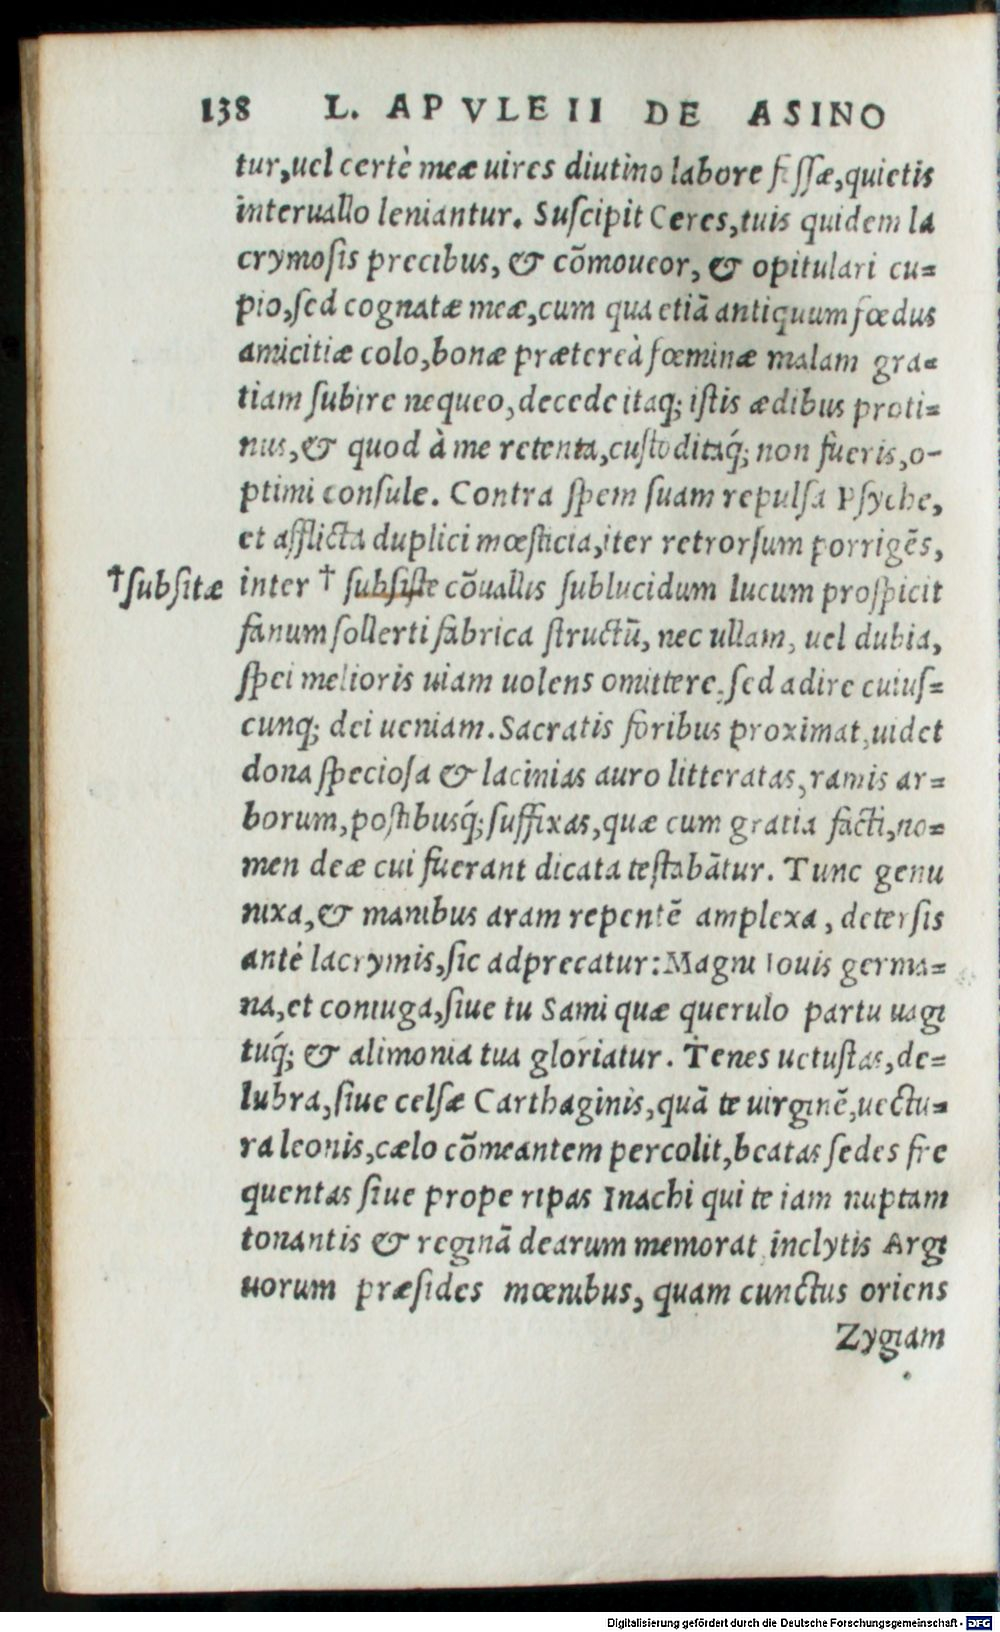 138 L. APVLEII DE ASINO
tur, uel certè meæ uires diutino labore fessæ, quietis
interuallo leniantur. Suscipit Ceres, tuis quidem la
crymosis precibus, & cõmoueor, & opitulari cu=
pio, sed cognatæ meæ, cum qua etiã antiquum fœdus
amicitiæ colo, bonæ prætereà fœminæ malam gra=
tiam subire nequeo, decede itaq; istis ædibus proti=
nus, & quod à me retenta, custoditaq́; non fueris, o-
ptimi consule. Contra spem suam repulsa Psyche,
et afflicta duplici mœsticia, iter retrorsum porrigẽs,
†subsitæ inter † subsiste cõuallis sublucidum lucum prospicit
fanum sollerti fabrica structũ, nec ullam, uel dubia,
spei melioris uiam uolens omittere, sed adire cuius=
cunq; dei ueniam. Sacratis foribus proximat, uidet
dona speciosa & lacinias auro litteratas, ramis ar=
borum, postibusq́; suffixas, quæ cum gratia facti, no=
men deæ cui fuerant dicata testabãtur. Tunc genu
nixa, & manibus aram repentẽ amplexa, detersis
antè lacrymis, sic adprecatur: Magni Iouis germa=
na, et coniuga, siue tu Sami quæ querulo partu uagi
tuq́; & alimonia tua gloriatur. Tenes uetustas, de=
lubra, siue celsæ Carthaginis, quã te uirginẽ, uectu=
ra leonis, cælo cõmeantem percolit, beatas sedes fre
quentas siue prope ripas Inachi qui te iam nuptam
tonantis & reginã dearum memorat, inclytis Argi
uorum præsides mœnibus, quam cunctus oriens
Zygiam
Digitalisierung gefördert durch die Deutsche Forschungsgemeinschaft - DFG